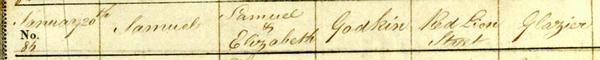 January 20th Samuel Samuel & Elizabeth Godkin Red Lion Street Glazier
No.